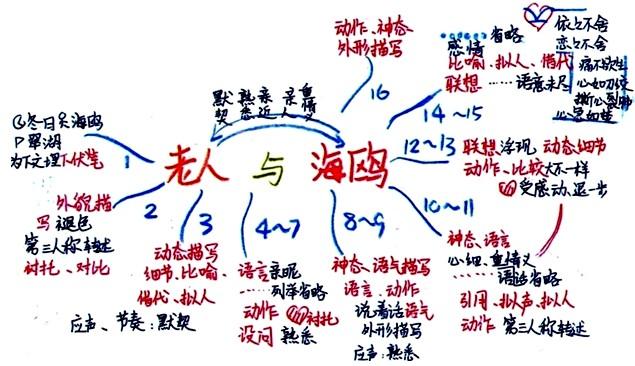 动作、神态
外形描写
16
省略
感情
比喻、拟人、借代
联想……语意未尽
14~15
依依不舍
恋恋不舍
痛不欲生
心如刀绞
撕心裂肺
心急如焚
默契 熟悉 亲近 亲人 重情义
老人与海鸥
冬日 海鸥
P翠湖
为下文埋下伏笔
1
外貌描
写 褪色
第三人称转述
衬托、对比
2
3
动态描写
细节、比喻、
借代、拟人
应声、节奏:默契
4~7
语言亲昵
……列举省略
动作 衬托
设问 熟悉
8~9
神态、语气描写
语言、动作
说着话语气
外形描写
应声:熟悉
10~11
神态、语言
心细、重情义
……语言省略
引用、拟声、拟人
动作 第三人称转述
12~13
联想浮现 动态细节
动作、比较大不一样
受震动、退一步